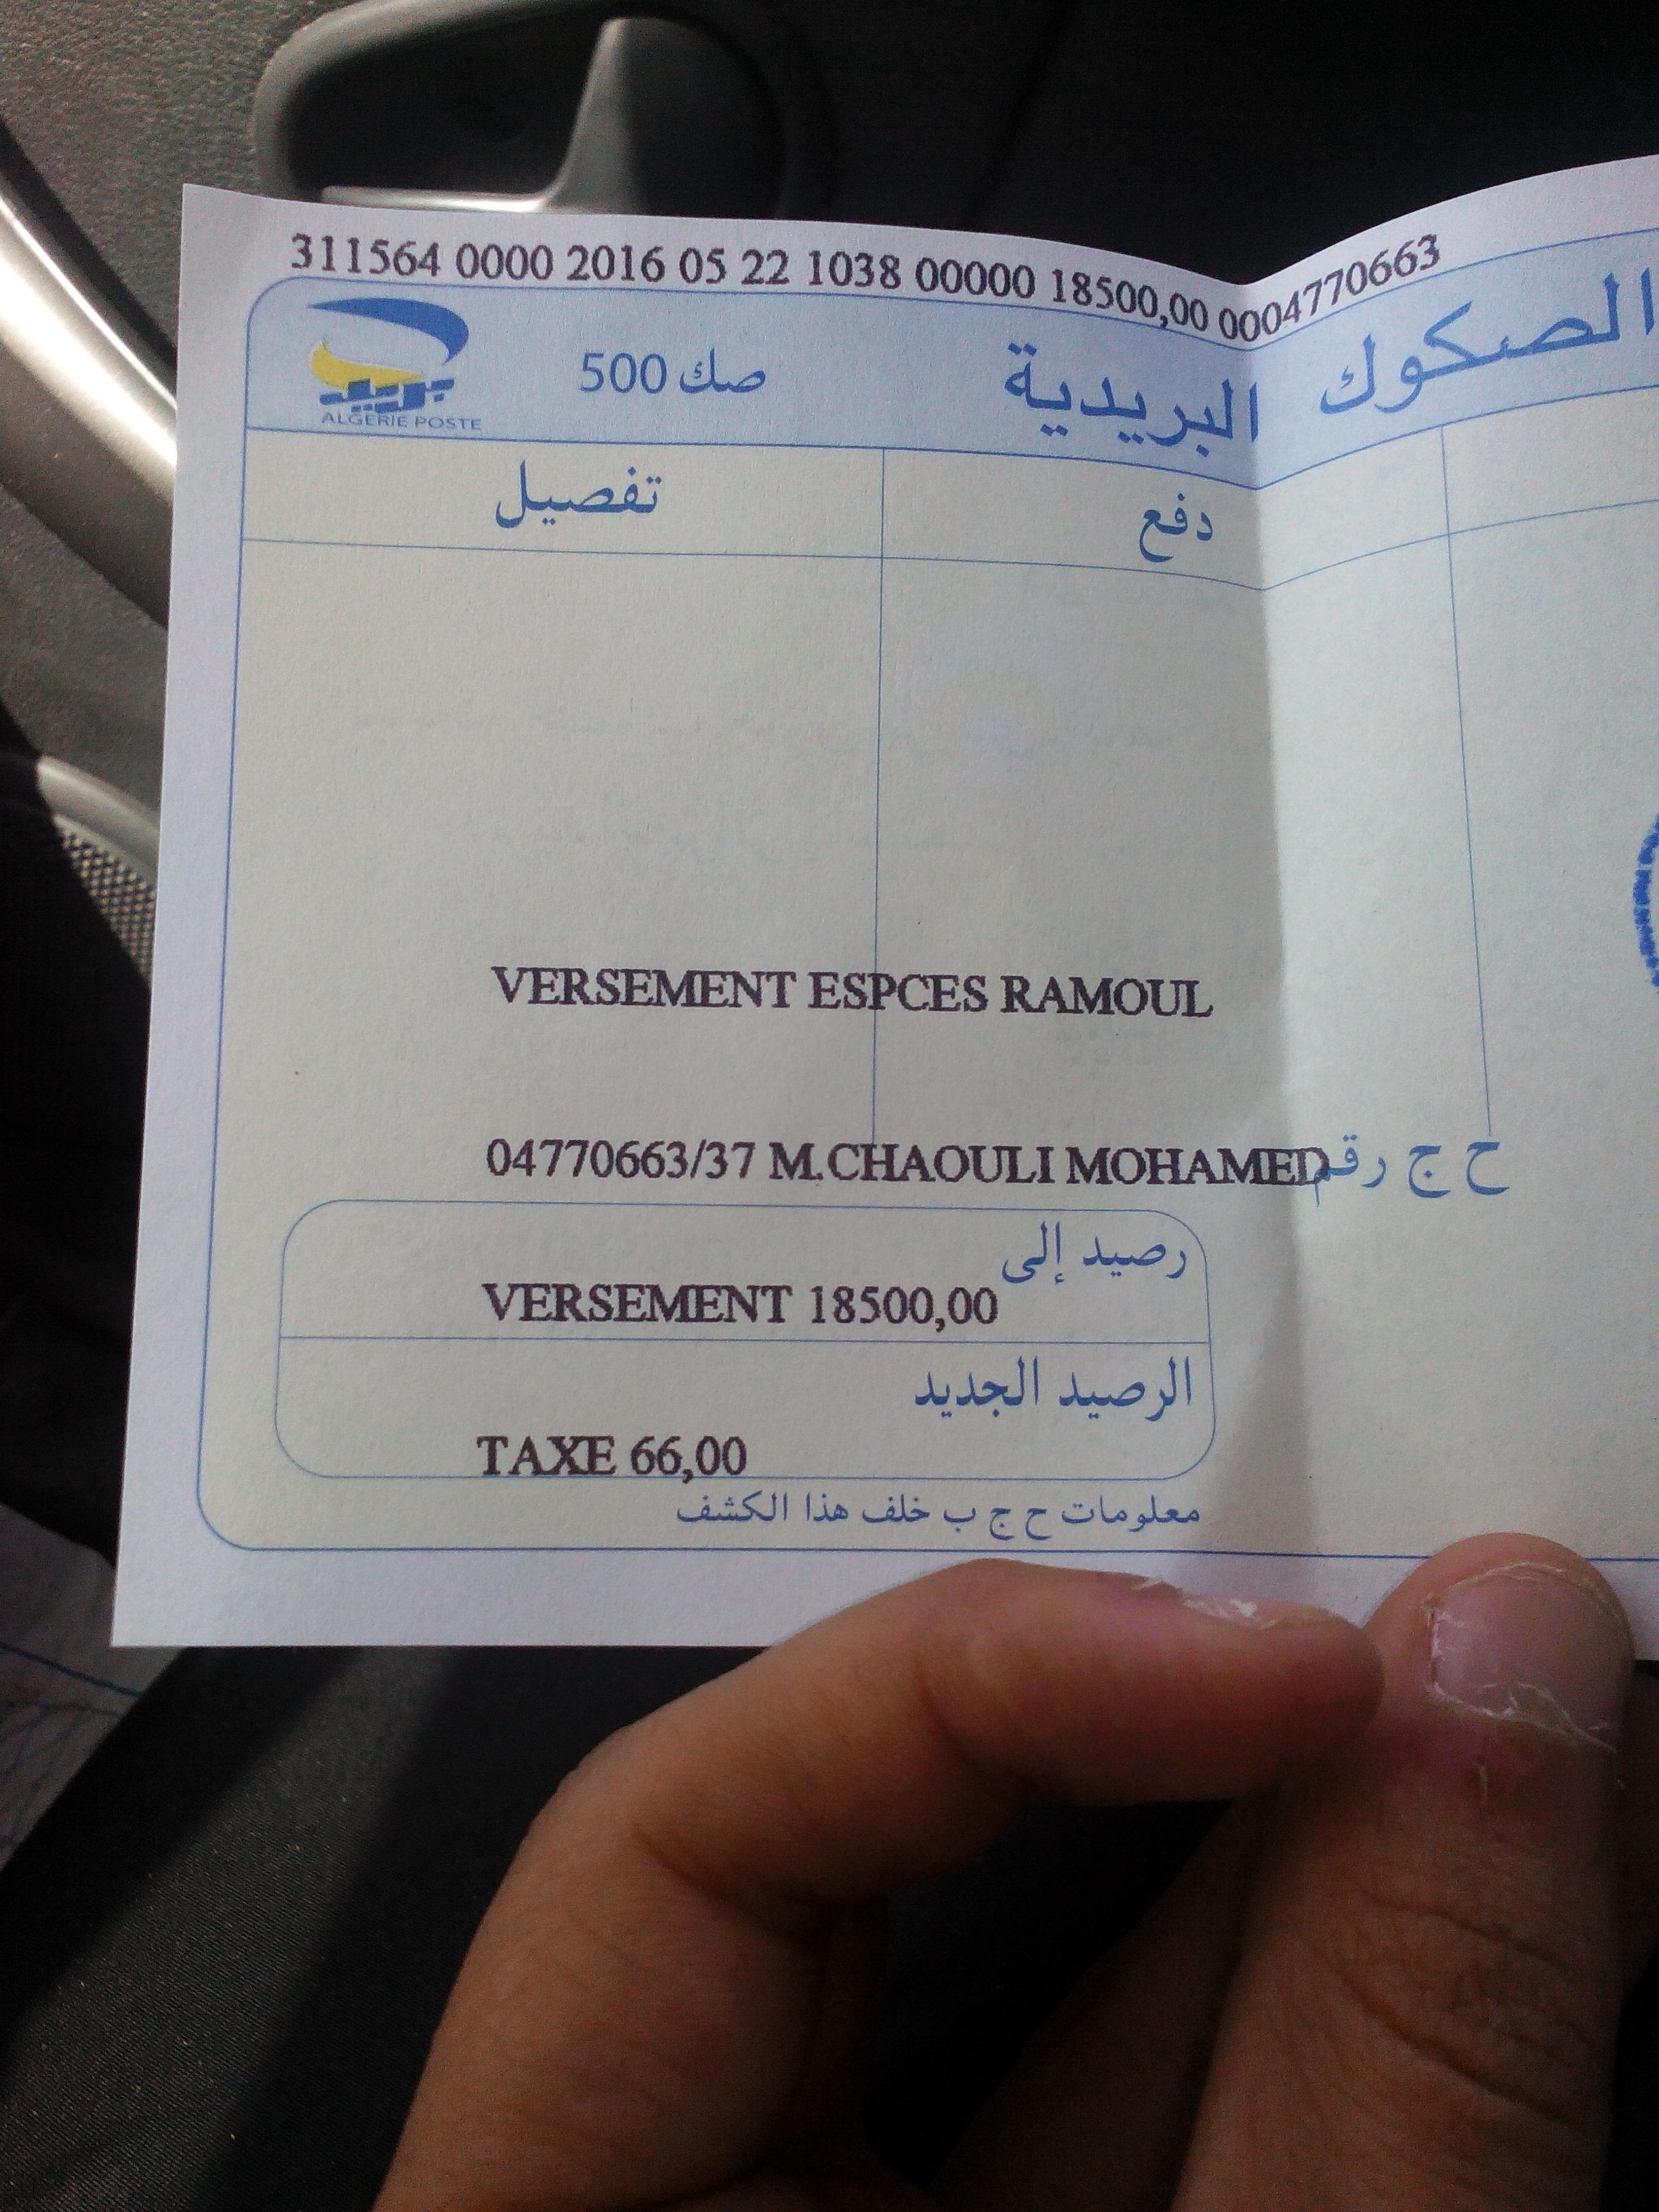 311564 0000 2016 05 22 1038 00000 18500,00 0004770663
الصكوك البريدية
صك 500
بريد
ALGERIE POSTE
دفع
تفصيل
VERSEMENT ESPCES RAMOUL
04770663/37 M.CHAOULI MOHAMED
ح ج رقم
رصيد إلى
VERSEMENT 18500,00
الرصيد الجديد
TAXE 66,00
معلومات ح ج ب خلف هذا الكشف